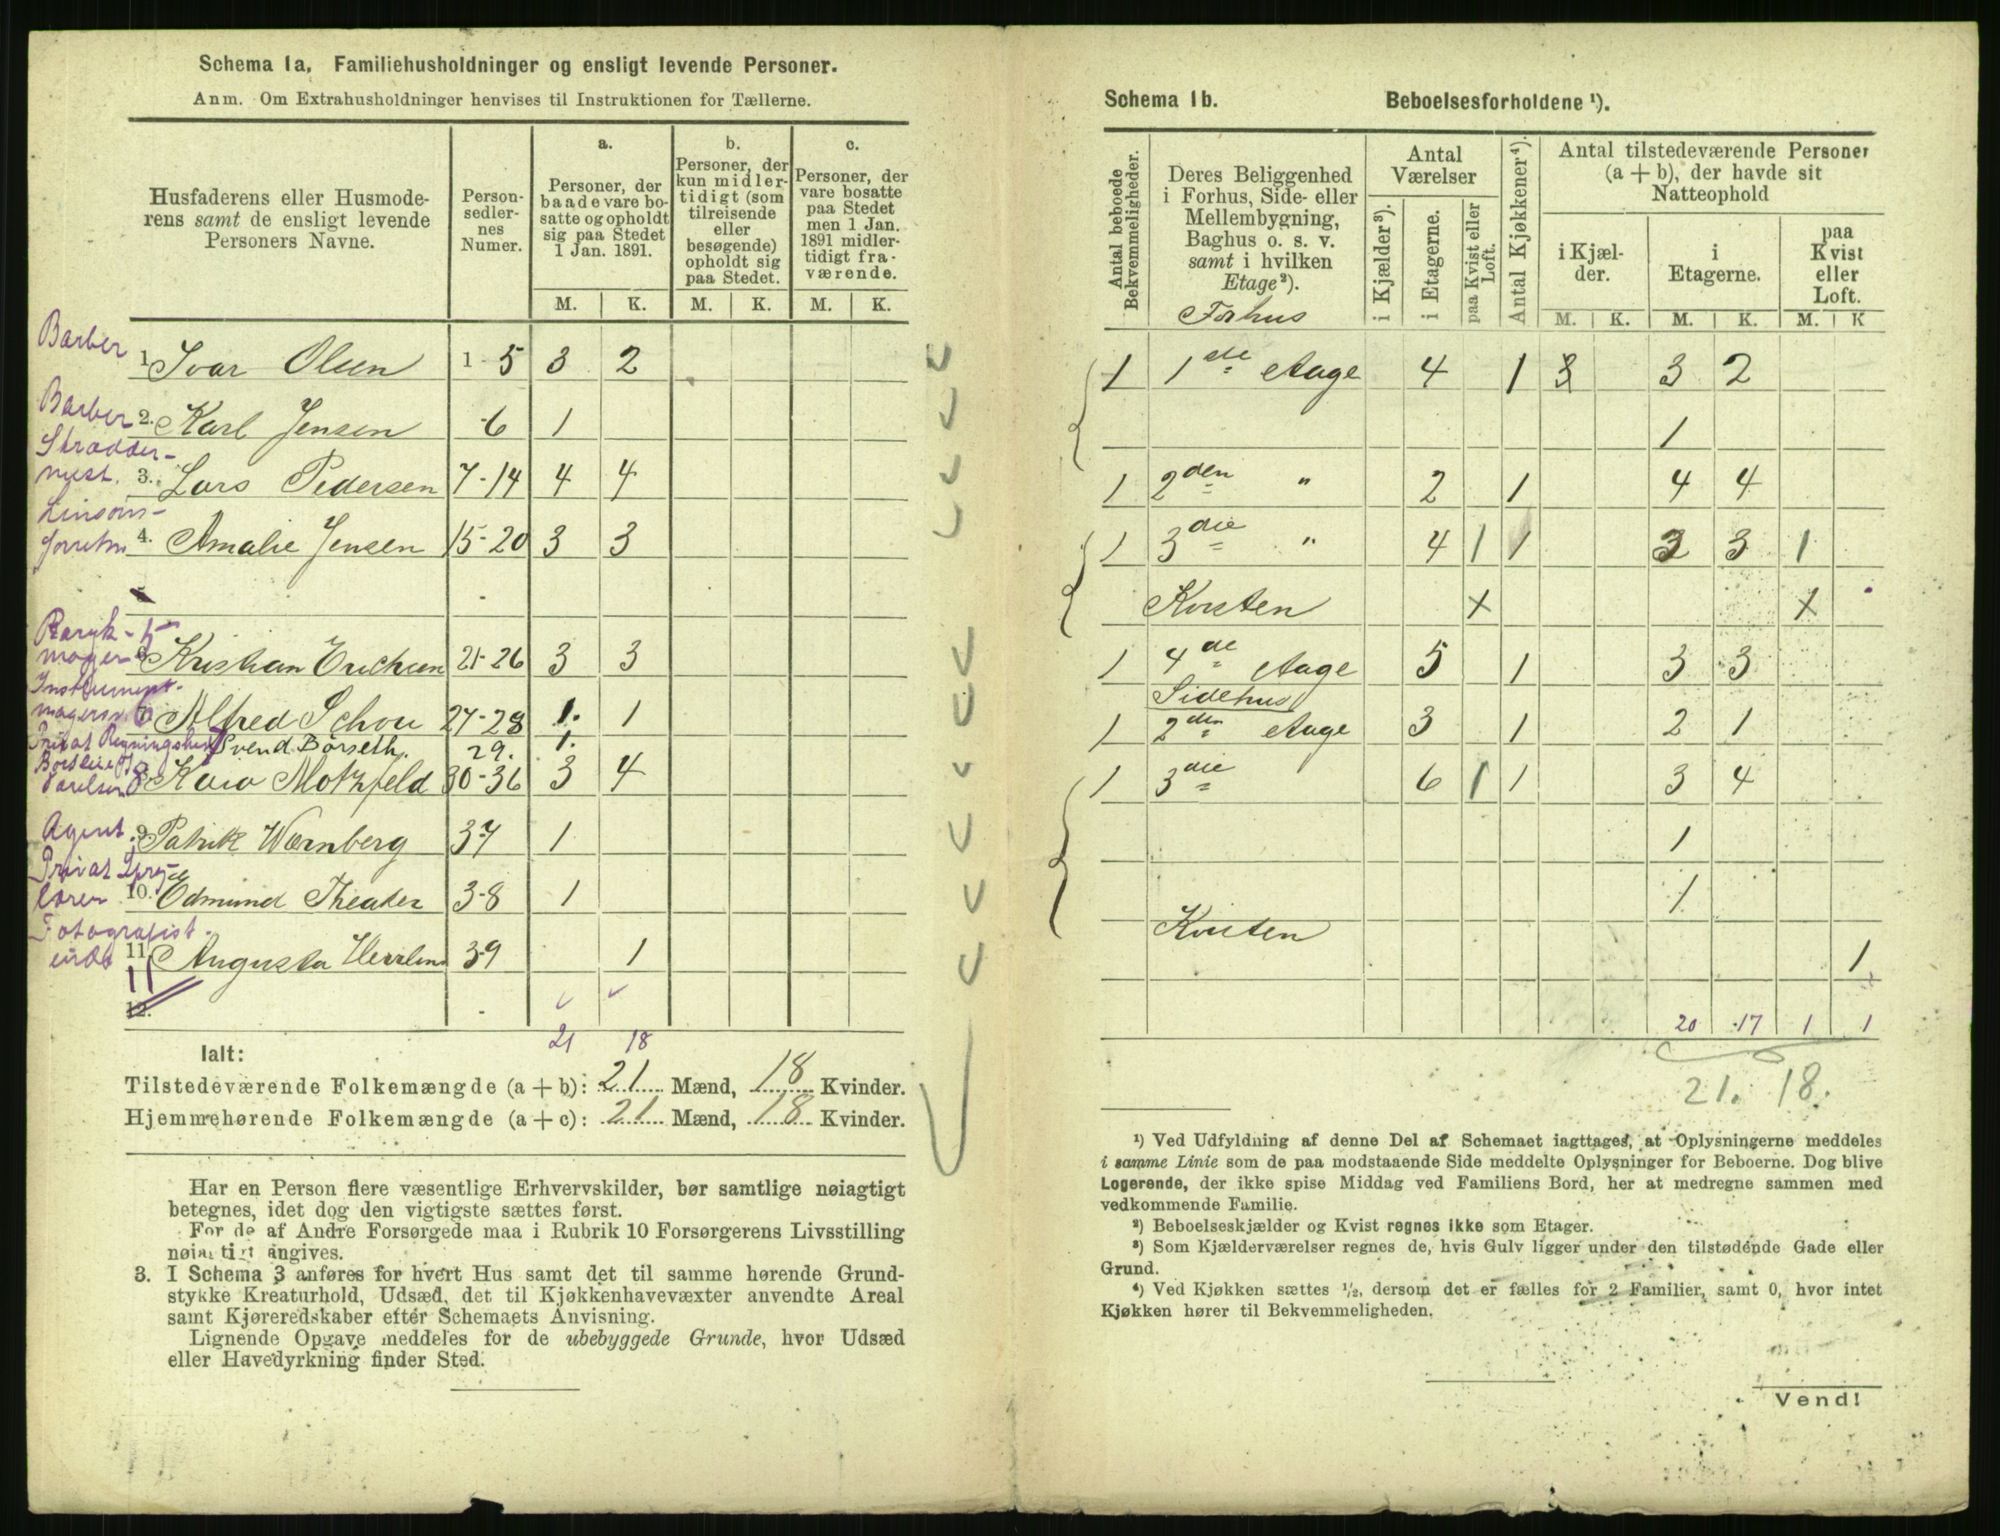 Schema 1a. Familiehusholdninger og ensligt levende Personer.
Anm. Om Extrahusholdninger henvises til Instruktionen for Tællerne.
Husfaderens eller Husmoderens samt de ensligt levende Personers Navne.
Personsedlernes Numer.
a. Personer, der baade vare bosatte og opholdt sig paa Stedet 1 Jan. 1891.
b. Personer, der kun midlertidigt (som tilreisende eller besøgende) opholdt sig paa Stedet.
c. Personer, der vare bosatte paa Stedet men 1 Jan. 1891 midlertidigt fraværende.
M. K. M. K. M. K.
Barber 1 Ivar Olsen 1-5 3 2
Barber 2. Karl Jensen -6 1
3. Lars Pedersen 7-14 4 4
4. Amalie Jensen 15-20 3 3
Paryk-mager 5 Kristian Erichsen 21-26 3 3
Alfred Schou 27-28 1. 1
Svend Börseth. 29. 1.
8 Kaia Motzfeld 30-36 3 4
Agent. 9 Patrik Wærnberg 37 1
Privat 10. Edmund Theater 38 1
Fotografist. 11 Augusta 39 1
12.
21 18
Ialt:
Tilstedeværende Folkemængde (a + b): 21 Mænd, 18 Kvinder.
Hjemmehørende Folkemængde (a + c): 21 Mænd, 18 Kvinder.
Har en Person flere væsentlige Erhvervskilder, bør samtlige nøiagtigt
betegnes, idet dog den vigtigste sættes først.
For de af Andre Forsørgede maa i Rubrik 10 Forsørgerens Livsstilling
nøiagtigt angives.
3. I Schema 3 anføres for hvert Hus samt det til samme hørende Grund-
stykke Kreaturhold, Udsæd, det til Kjøkkenhavevæxter anvendte Areal
samt Kjøreredskaber efter Schemaets Anvisning.
Lignende Opgave meddeles for de ubebyggede Grunde, hvor Udsæd
eller Havedyrkning finder Sted.
Schema 1b. Beboelsesforholdene ¹).
Antal beboede Bekvemmeligheder.
Deres Beliggenhed i Forhus, Side- eller Mellembygning, Baghus o. s. v. samt i hvilken Etage²).
Antal Værelser
i Kjælder³).
i Etagerne.
paa Kvist eller Loft.
Antal Kjøkkener⁴).
Antal tilstedeværende Personer (a + b), der havde sit Natteophold
i Kjælder.
i Etagerne.
paa Kvist eller Loft.
M. K. M. K. M. K
Forhus
1 1de Etage 4 1 3 3 2
1
1 2den " 2 1 4 4
1 3die " 4 1 1 3 3 1
Kvisten x x
1 4de Etage 5 1 3 3
Sidehus
1 2den Etage 3 1 2 1
1 3die 6 1 1 3 4
1
1
Kvisten
1
20 17 1 1
21. 18.
¹) Ved Udfyldning af denne Del af Schemaet iagttages, at Oplysningerne meddeles
i samme Linie som de paa modstaaende Side meddelte Oplysninger for Beboerne. Dog blive
Logerende, der ikke spise Middag ved Familiens Bord, her at medregne sammen med
vedkommende Familie.
²) Beboelseskjælder og Kvist regnes ikke som Etager.
³) Som Kjælderværelser regnes de, hvis Gulv ligger under den tilstødende Gade eller
Grund.
⁴) Ved Kjøkken sættes ½, dersom det er fælles for 2 Familier, samt 0, hvor intet
Kjøkken hører til Bekvemmeligheden.
Vend!